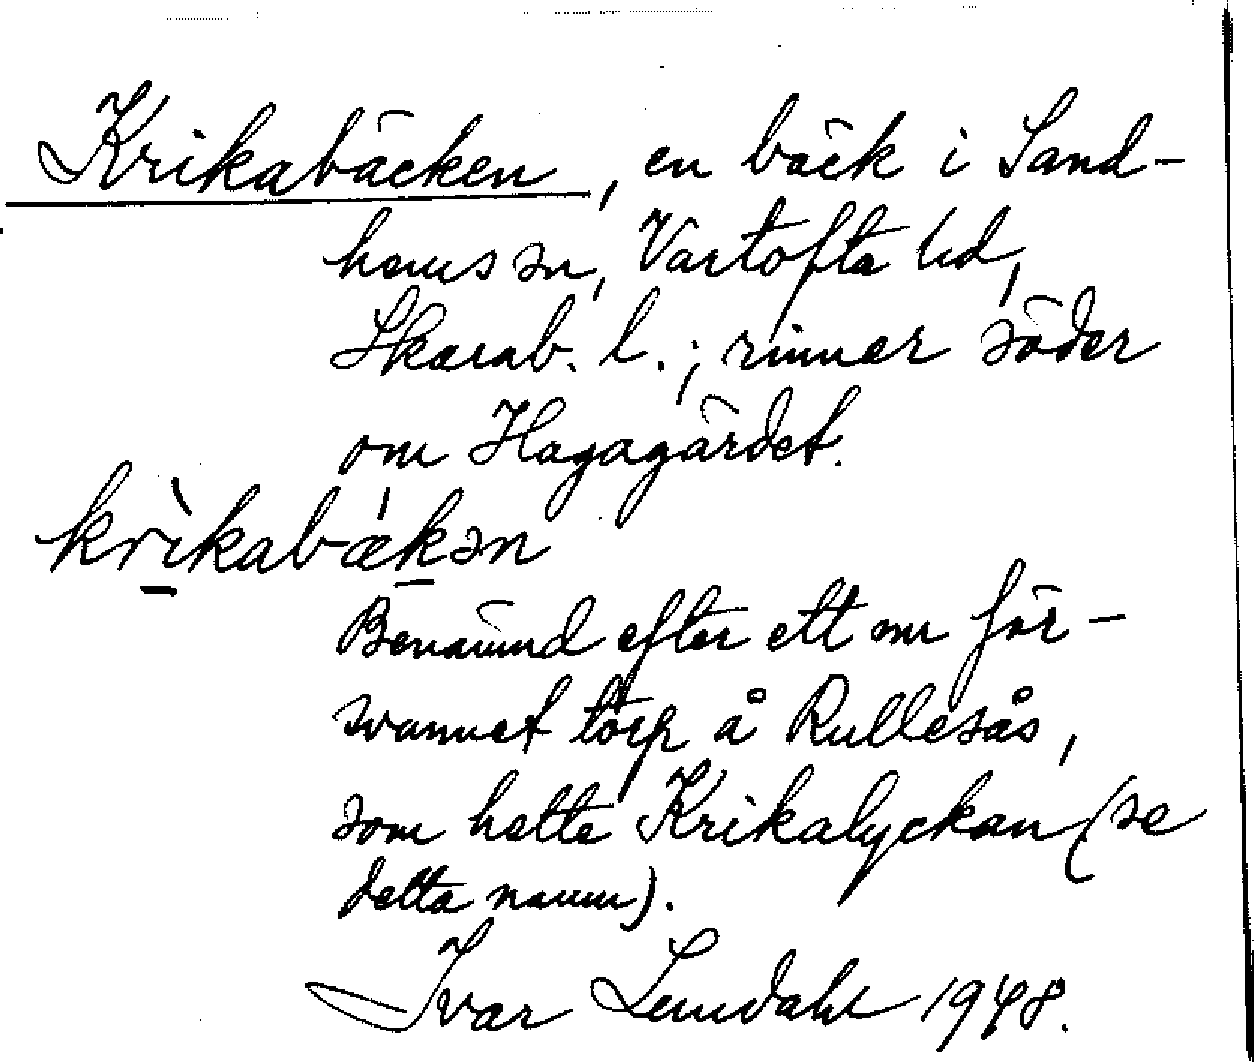 Krikabäcken, en bäck i Sand-
hems sn, Vartofta hd,
Skarab. l.; rinner söder
om Hagagärdet.
krìkabǽkən
Benämnd efter ett nu för-
svunnet torp å Rullesås,
som hette Krikalyckan (se
detta namn).
Ivar Lundahl 1948.